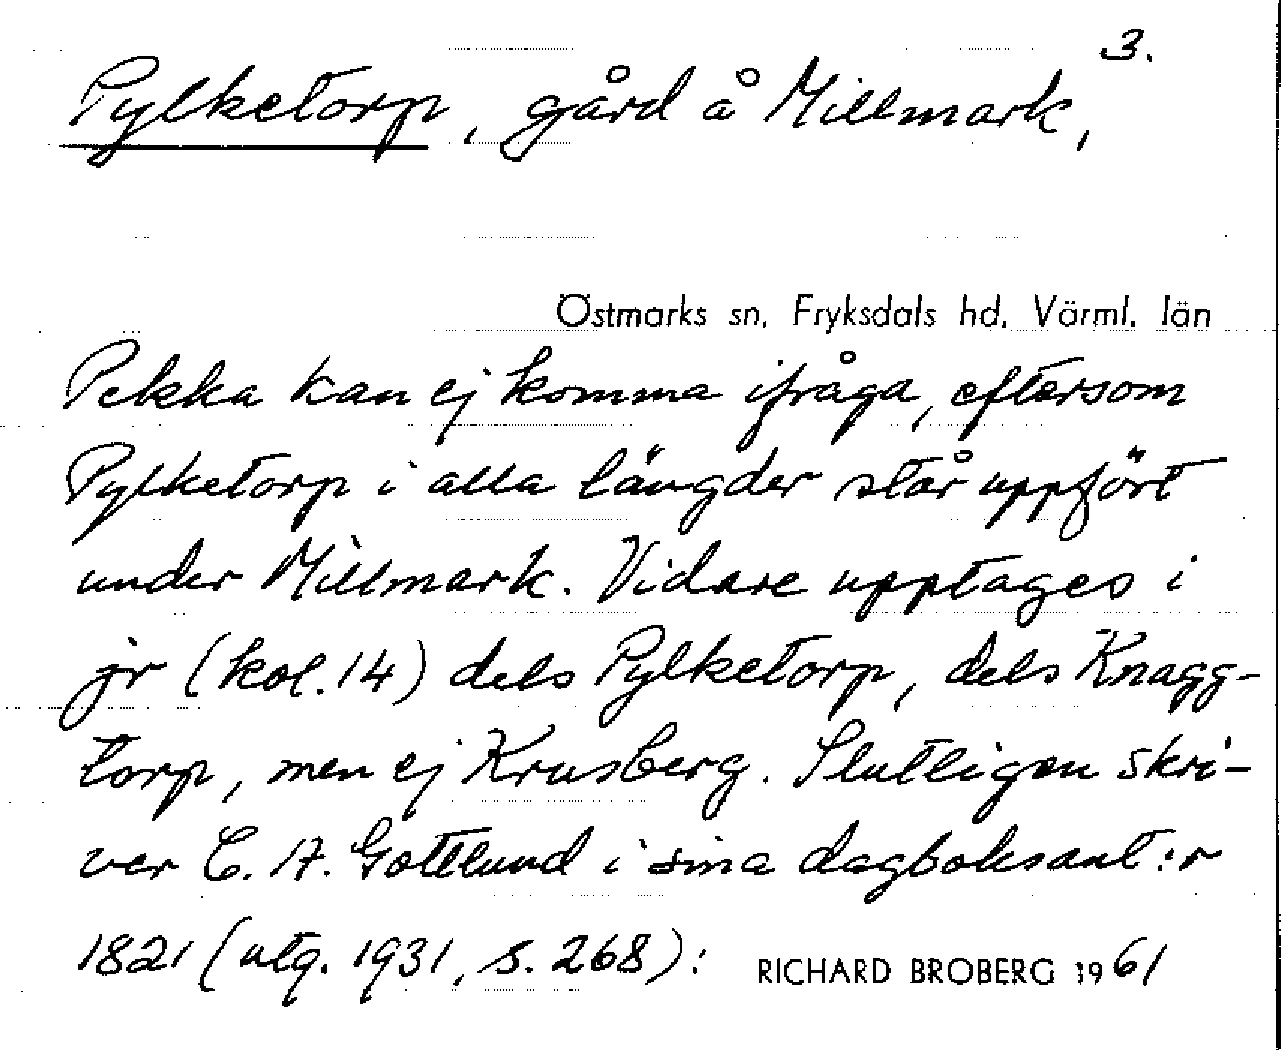 3.
Pylketorp, gård å Millmark,
Östmarks sn, Fryksdals hd, Värml. län
Pekka kan ej komma ifråga, eftersom
Pylketorp i alla längder står uppfört
under Millmark. Vidare upptages i
jr (kol. 14) dels Pylketorp, dels Knagg-
torp, men ej Krusberg. Slutligen skri-
ver C. A. Gottlund i sina dagboksant:r
1821 (utg. 1931, s. 268):
RICHARD BROBERG 1961